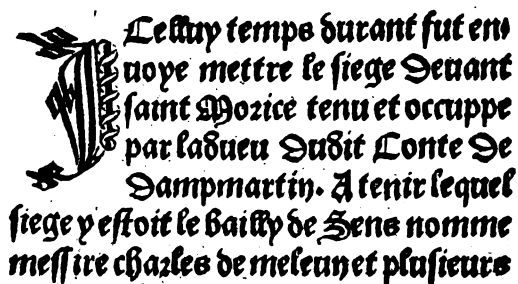 ICelluy temps durant fut en
uoye mettre le siege Deuant
saint Morice tenu et occuppe
par ladueu Dudit Conte De
Dampmartin. A tenir lequel
siege y estoit le bailly de Sens nomme
messire charles de meleun et plusieurs